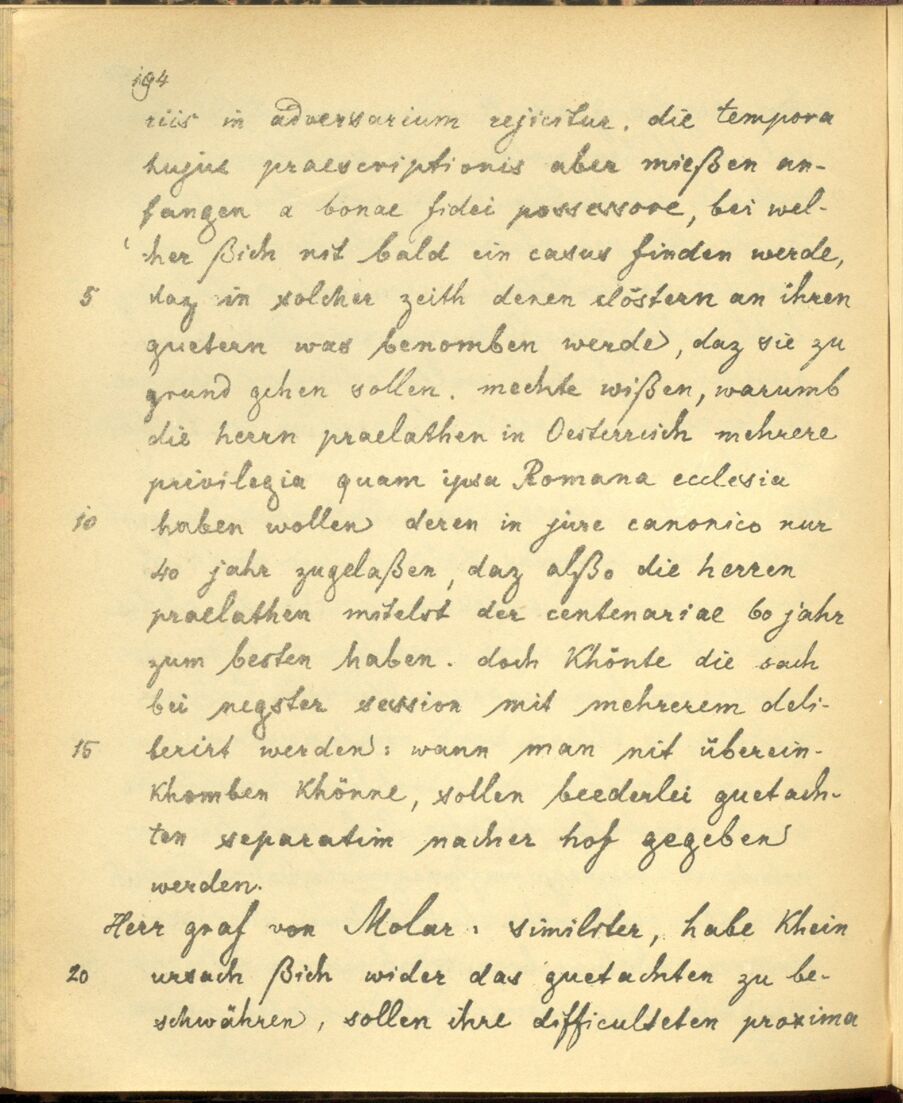 194
riis in adversarium rejicitur. die tempora
hujus praescriptionis aber mießen an-
fangen a bonae fidei possessore, bei wel-
cher ßich nit bald ein casus finden werde,
5 daz in solcher zeith denen clöstern an ihren
guetern was benomben werde, daz sie zu
grund gehen sollen. mechte wißen, warumb
die herrn praelathen in Oesterreich mehrere
privilegia quam ipsa Romana ecclesia
10 haben wollen deren in jure canonico nur
40 jahr zugelaßen, daz alßo die herren
praelathen mitelst der centenariae 60 jahr
zum besten haben. doch khönte die sach
bei negster session mit mehrerem deli-
15 berirt werden: wann man nit überein-
khomben khönne, sollen beederlei guetach-
ten separatim nacher hof gegeben
werden.
Herr graf von Molar: similiter, habe khein
20 ursach ßich wider das guetachten zu be-
schwähren, sollen ihre difficulteten proxima